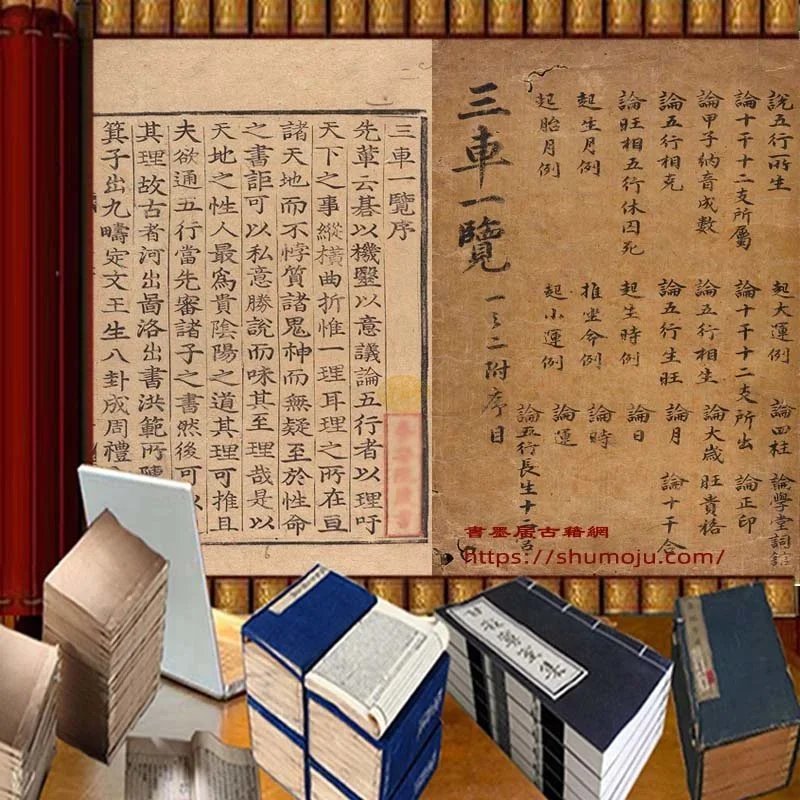 說五行所生 起大運例 論四柱 論學堂詞館
論十干十二支所屬 論十干十二支所出 論正印
論甲子納音成數 論五行相生 論大歲 旺貴格
論五行相克 論五行生旺 論月 論十干合
論旺相五行休囚死 起生時例 論日
起生月例 推坐命例 論時
起胎月例 起小運例 論運
論五行長生十二宮
三車一覽 一之二附序目
三車一覽序
先輩云碁以機毉以意議論五行者以理吁
天下之事縱橫曲折惟一理耳理之所在亘
諸天地而不悖質諸鬼神而無疑至於性命
之書詎可以私意勝說而味其至理哉是以
天地之性人最爲貴陰陽之道其理可推且
夫欲通五行當先審諸子之書然後可以
其理故古者河出啚洛出書洪範所陳
箕子出九疇定文王生八卦成周禮
書墨廣古籍網
https://shumoju.com/